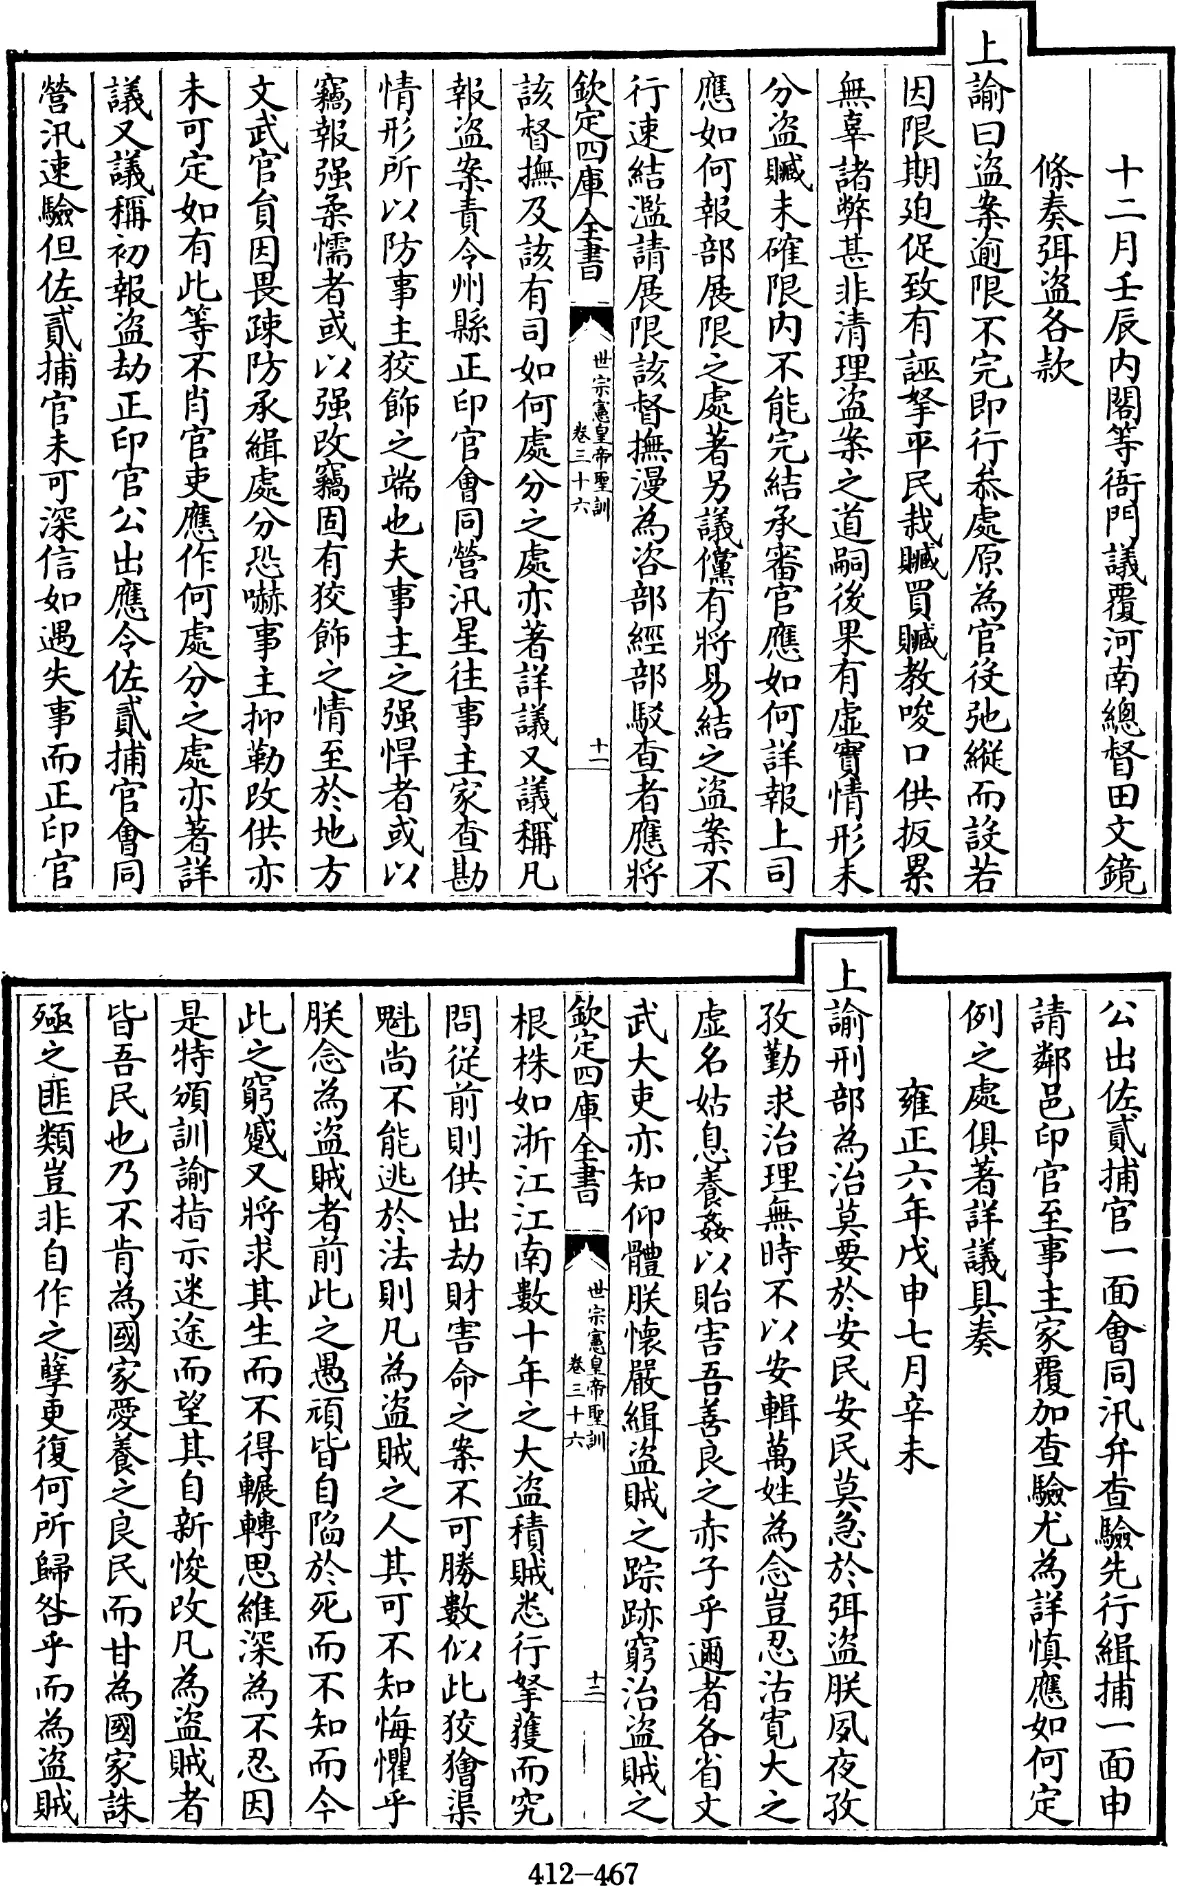 十二月壬辰内閣等衙門議覆河南總督田文鏡
條奏弭盗各款
上諭曰盗案逾限不完即行叅處原為官役弛縱而設若
因限期迫促致有誣拏平民栽贓買贓教唆口供扳累
無辜諸弊甚非清理盗案之道嗣後果有虚實情形未
分盗贓未確限内不能完結承審官應如何詳報上司
應如何報部展限之處著另議儻有將易結之盗案不
行速結濫請展限該督撫漫為咨部經部駁查者應將
欽定四庫全書
世宗憲皇帝聖訓
卷三十六
十一
該督撫及該有司如何處分之處亦著詳議又議稱凡
報盗案責令州縣正印官會同營汛星往事主家查勘
情形所以防事主狡飾之端也夫事主之强悍者或以
竊報强柔懦者或以强改竊固有狡飾之情至於地方
文武官員因畏疎防承緝處分恐嚇事主抑勒改供亦
未可定如有此等不肖官吏應作何處分之處亦著詳
議又議稱初報盗劫正印官公出應令佐貳捕官會同
營汛速驗但佐貳捕官未可深信如遇失事而正印官
公出佐貳捕官一面會同汛弁查驗先行緝捕一面申
請鄰邑印官至事主家覆加查驗尤為詳慎應如何定
例之處俱著詳議具奏
雍正六年戊申七月辛未
上諭刑部為治莫要於安民安民莫急於弭盗朕夙夜孜
孜勤求治理無時不以安輯萬姓為念豈忍沽寛大之
虚名姑息養姦以貽害吾善良之赤子乎邇者各省文
武大吏亦知仰體朕懷嚴緝盗賊之踪跡窮治盗賊之
欽定四庫全書
世宗憲皇帝聖訓
卷三十六
十二
根株如浙江江南數十年之大盗積賊悉行拏獲而究
問從前則供出劫財害命之案不可勝數似此狡獪渠
魁尚不能逃於法則凡為盗賊之人其可不知悔懼乎
朕念為盗賊者前此之愚頑皆自陷於死而不知而今
此之窮蹙又將求其生而不得輾轉思維深為不忍因
是特頒訓諭指示迷途而望其自新悛改凡為盗賊者
皆吾民也乃不肯為國家愛養之良民而甘為國家誅
殛之匪類豈非自作之孽更復何所歸咎乎而為盗賊
412-467